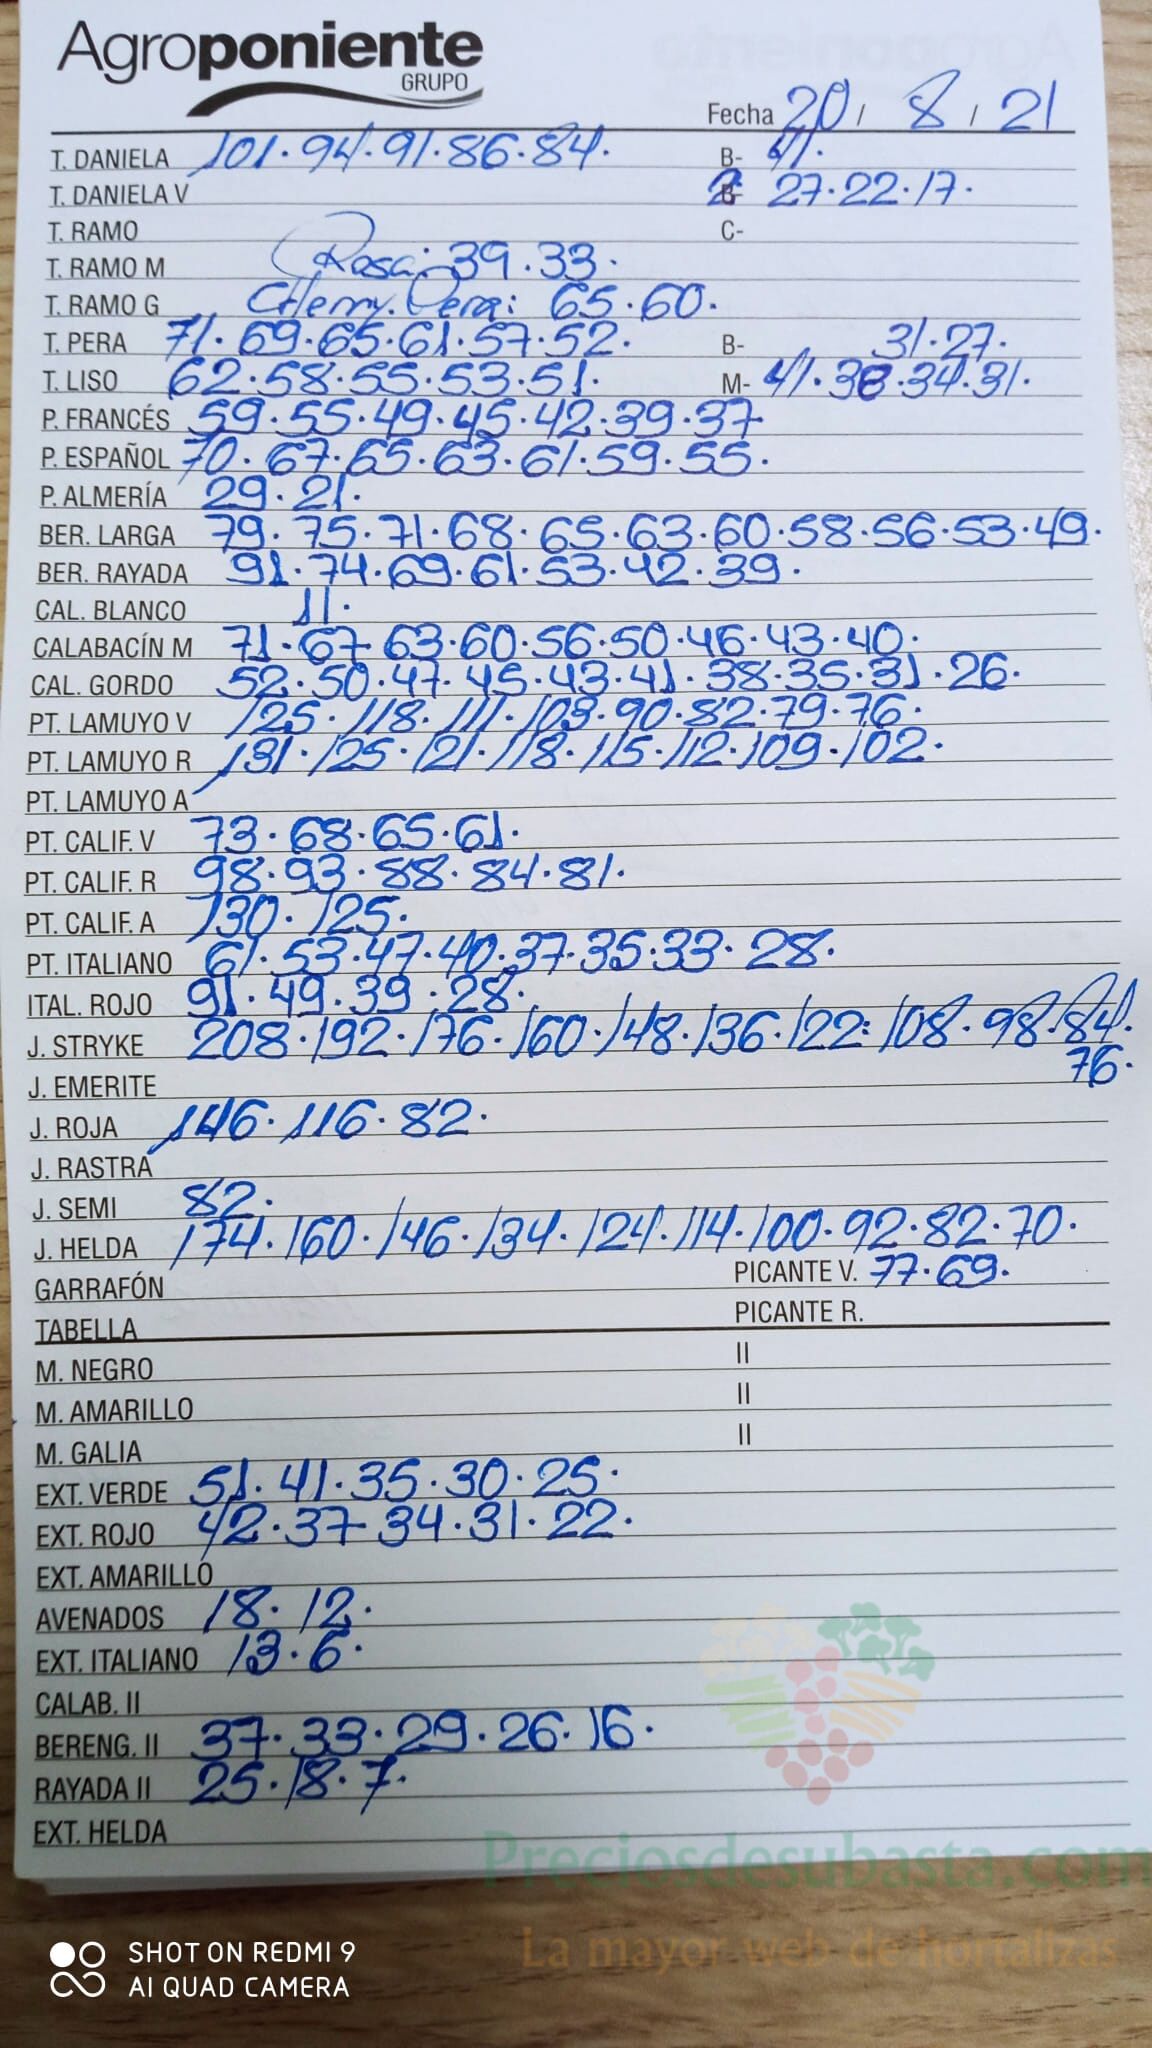 Agroponiente
GRUPO
Fecha 20 / 8 / 21
T. DANIELA 101·94·91·86·84· B- 41·
T. DANIELA V 27·22·17·
T. RAMO C-
T. RAMO M Rosa: 39·33·
T. RAMO G Cherry Pera: 65·60·
T. PERA 71·69·65·61·57·52· B- 31·27·
T. LISO 62·58·55·53·51· M- 41·38·34·31·
P. FRANCÉS 59·55·49·45·42·39·37
P. ESPAÑOL 70·67·65·63·61·59·55·
P. ALMERÍA 29·21·
BER. LARGA 79·75·71·68·65·63·60·58·56·53·49·
BER. RAYADA 91·74·69·61·53·42·39·
CAL. BLANCO 11·
CALABACÍN M 71·67·63·60·56·50·46·43·40·
CAL. GORDO 52·50·47·45·43·41·38·35·31·26·
PT. LAMUYO V 125·118·111·103·90·82·79·76·
PT. LAMUYO R 131·125·121·118·115·112·109·102·
PT. LAMUYO A
PT. CALIF. V 73·68·65·61·
PT. CALIF. R 98·93·88·84·81·
PT. CALIF. A 130·125·
PT. ITALIANO 61·53·47·40·37·35·33·28·
ITAL. ROJO 91·49·39·28·
J. STRYKE 208·192·176·160·148·136·122·108·98·84·
J. EMERITE 76·
J. ROJA 146·116·82·
J. RASTRA
J. SEMI 82·
J. HELDA 174·160·146·134·124·114·100·92·82·70·
GARRAFÓN PICANTE V. 77·69·
TABELLA PICANTE R.
M. NEGRO II
M. AMARILLO II
M. GALIA II
EXT. VERDE 51·41·35·30·25·
EXT. ROJO 42·37·34·31·22·
EXT. AMARILLO
AVENADOS 18·12·
EXT. ITALIANO 13·6·
CALAB. II
BERENG. II 37·33·29·26·16·
RAYADA II 25·18·7·
EXT. HELDA
Preciosdesubasta.com
La mayor web de hortalizas
SHOT ON REDMI 9
AI QUAD CAMERA